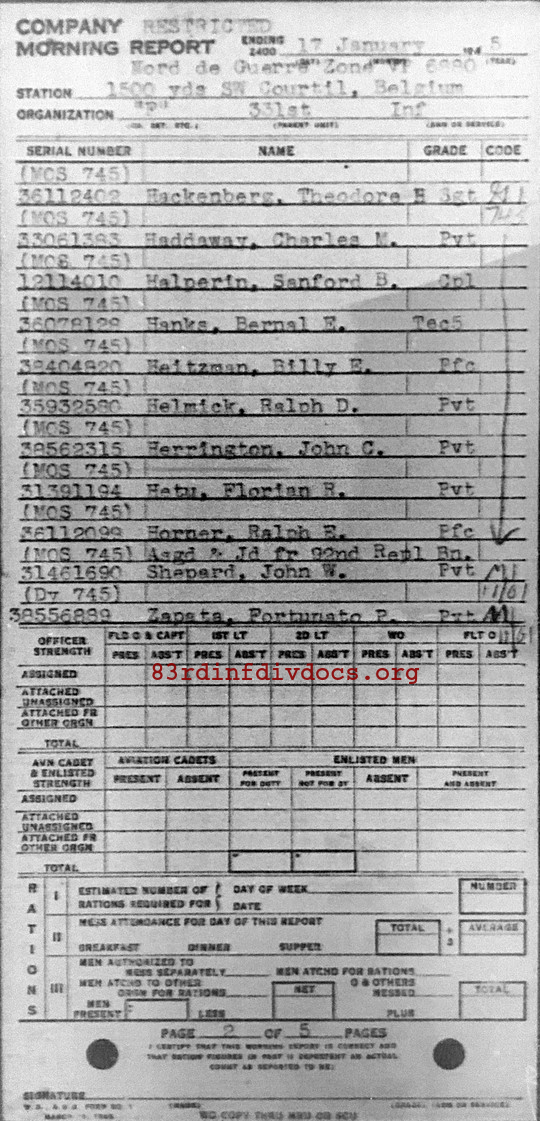 COMPANY RESTRICTED
MORNING REPORT ENDING 2400 17 January 194 5
Nord de Guerre Zone VP 6880
STATION 1500 yds SW Courtil, Belgium
ORGANIZATION 331st Inf
(CO. DET. ETC.) (PARENT UNIT) (ARM OR SERVICE)
SERIAL NUMBER NAME GRADE CODE
(MOS 745)
36112402 Hackenberg, Theodore H Sgt
(MOS 745) 745
33061383 Haddaway, Charles M. Pvt
(MOS 745)
12114010 Halperin, Sanford B. Cpl
(MOS 745)
36078128 Hanks, Bernal E. Tec5
(MOS 745)
38404820 Heitzman, Billy E. Pfc
(MOS 745)
35932580 Helmick, Ralph D. Pvt
(MOS 745)
38562315 Herrington, John C. Pvt
(MOS 745)
31391194 Hetu, Florian R. Pvt
(MOS 745)
36112099 Horner, Ralph E. Pfc
(MOS 745) Asgd & Jd fr 92nd Repl Bn.
31461690 Shepard, John W. Pvt
(Dy 745)
38556889 Zapata, Fortunato P. Pvt
OFFICER STRENGTH FLD O & CAPT 1ST LT 2D LT WO FLT O
PRES ABS'T PRES ABS'T PRES ABS'T PRES ABS'T PRES ABS'T
ASSIGNED
83rdinfdivdocs.org
ATTACHED UNASSIGNED
ATTACHED FR OTHER ORGN
TOTAL
AVN CADET & ENLISTED STRENGTH AVIATION CADETS ENLISTED MEN
PRESENT ABSENT PRESENT FOR DUTY PRESENT NOT FOR DY ABSENT PRESENT AND ABSENT
ASSIGNED
ATTACHED UNASSIGNED
ATTACHED FR OTHER ORGN
TOTAL
RATIONS
I ESTIMATED NUMBER OF RATIONS REQUIRED FOR DAY OF WEEK DATE NUMBER
II MESS ATTENDANCE FOR DAY OF THIS REPORT TOTAL ÷ 3 AVERAGE
BREAKFAST DINNER SUPPER
III MEN AUTHORIZED TO MESS SEPARATELY MEN ATCHD FOR RATIONS
MEN ATCHD TO OTHER ORGN FOR RATIONS NET O & OTHERS MESSED TOTAL
MEN PRESENT LESS PLUS
PAGE 2 OF 5 PAGES
I CERTIFY THAT THIS MORNING REPORT IS CORRECT AND
THAT RATION FIGURES IN PART II REPRESENT AN ACTUAL
COUNT AS REPORTED TO ME:
SIGNATURE
W.D., A.G.O. FORM NO. 1 (GRADE) (ARM OR SERVICE)
WD COPY THRU MRU OR SCU